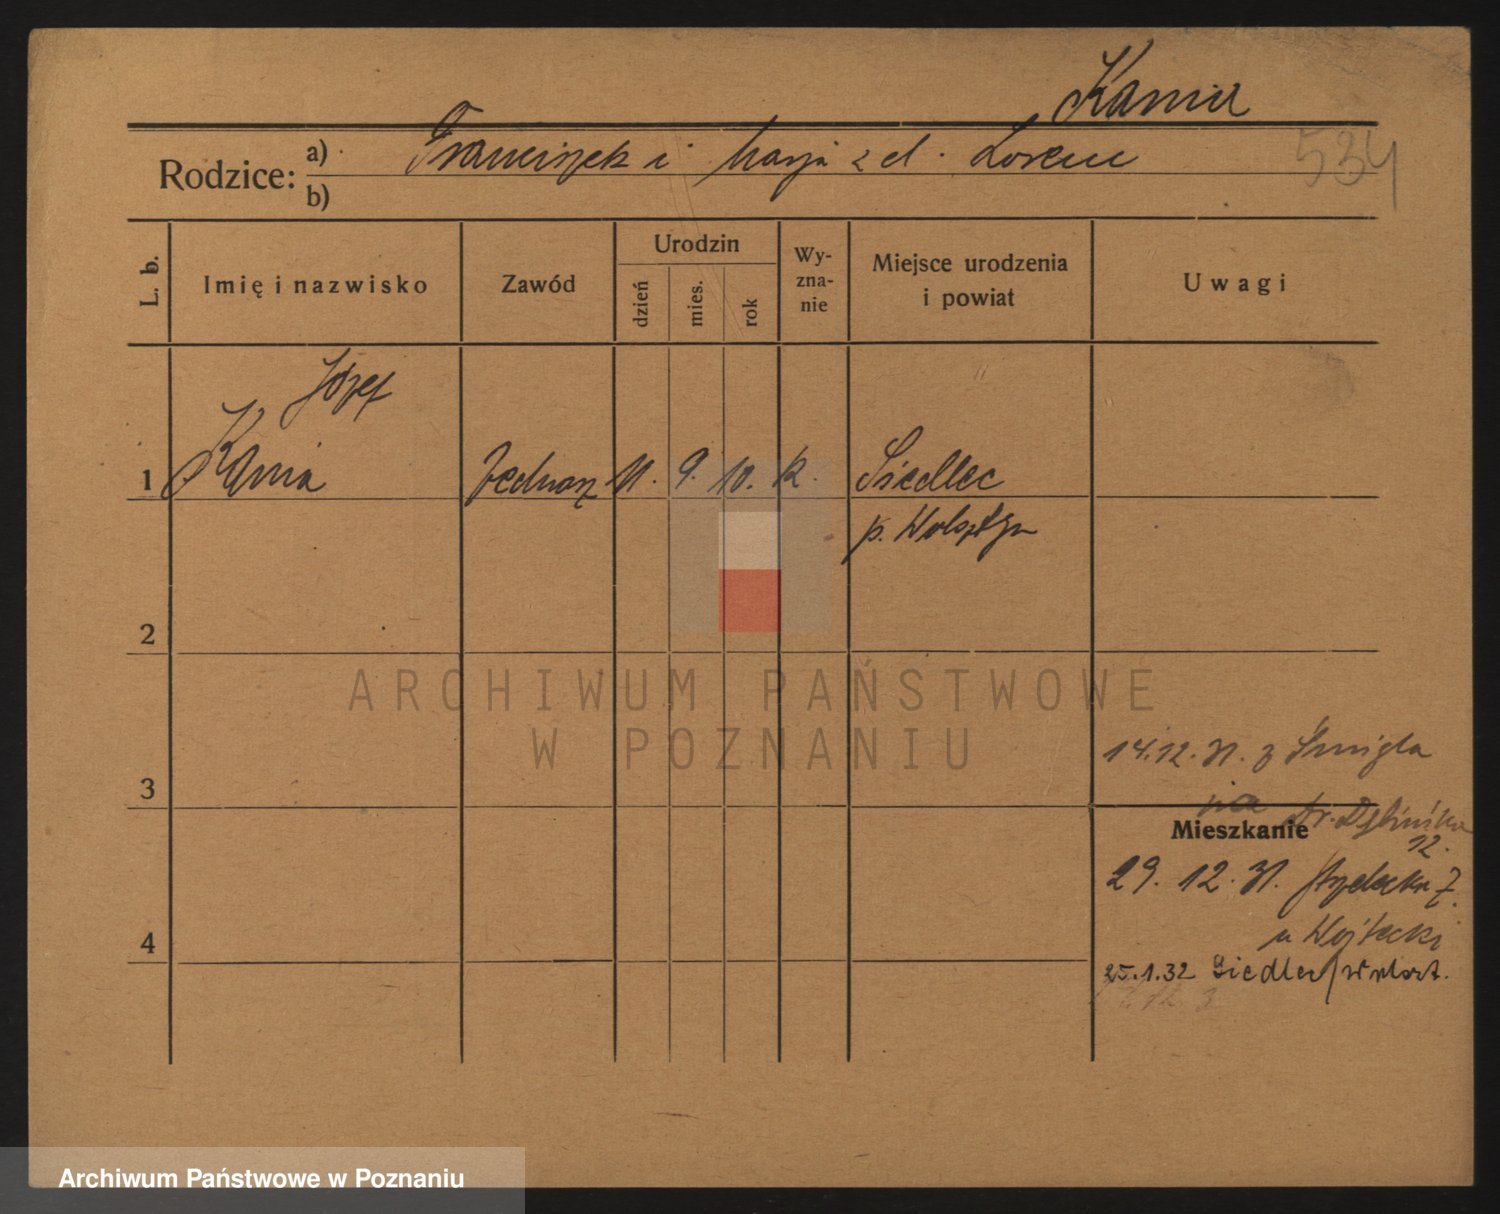 Kania
Rodzice: a) Franciszek i Marja z d. Lorenc
b)
534
L. b.
Imię i nazwisko
Zawód
Urodzin
dzień
mies.
rok
Wy-
zna-
nie
Miejsce urodzenia
i powiat
Uwagi
Józef
1 Kania 11. 9. 10. k. Siedlec
p. Wolsztyn
2
ARCHIWUM PAŃSTWOWE
W POZNANIU
14.12.31. z Śmigla
3
Mieszkanie
12.
29. 12. 31. 7.
u Wojtecki
4
25.1.32 Siedlec/
Archiwum Państwowe w Poznaniu